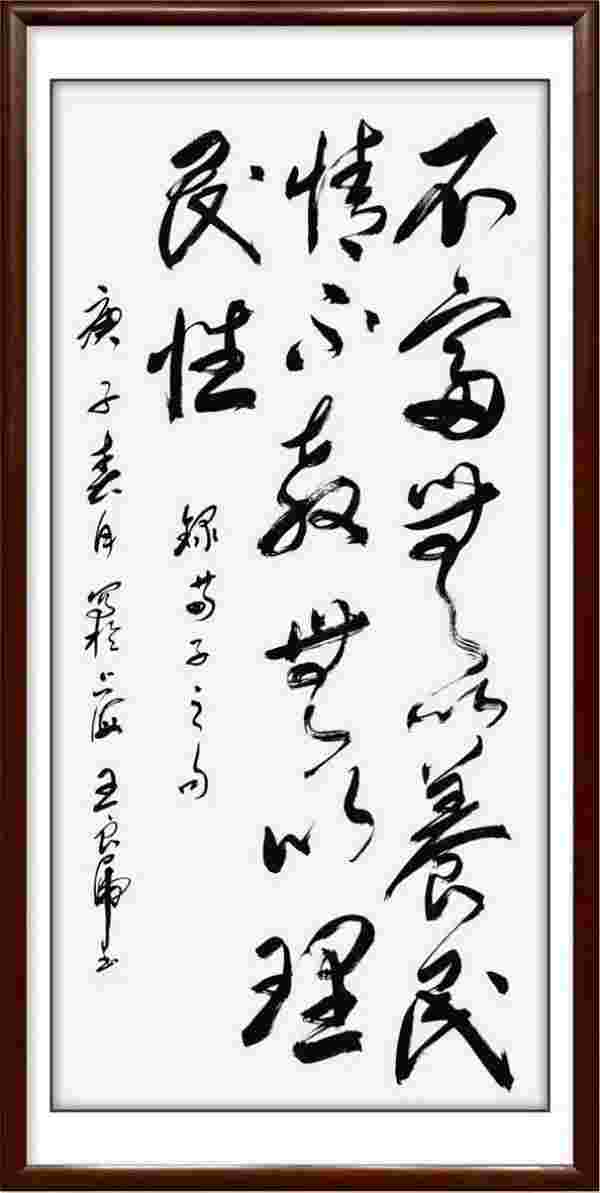 不富無以養民
情不教無以理
民性
錄荀子之句
庚子春月寫於上海王良書